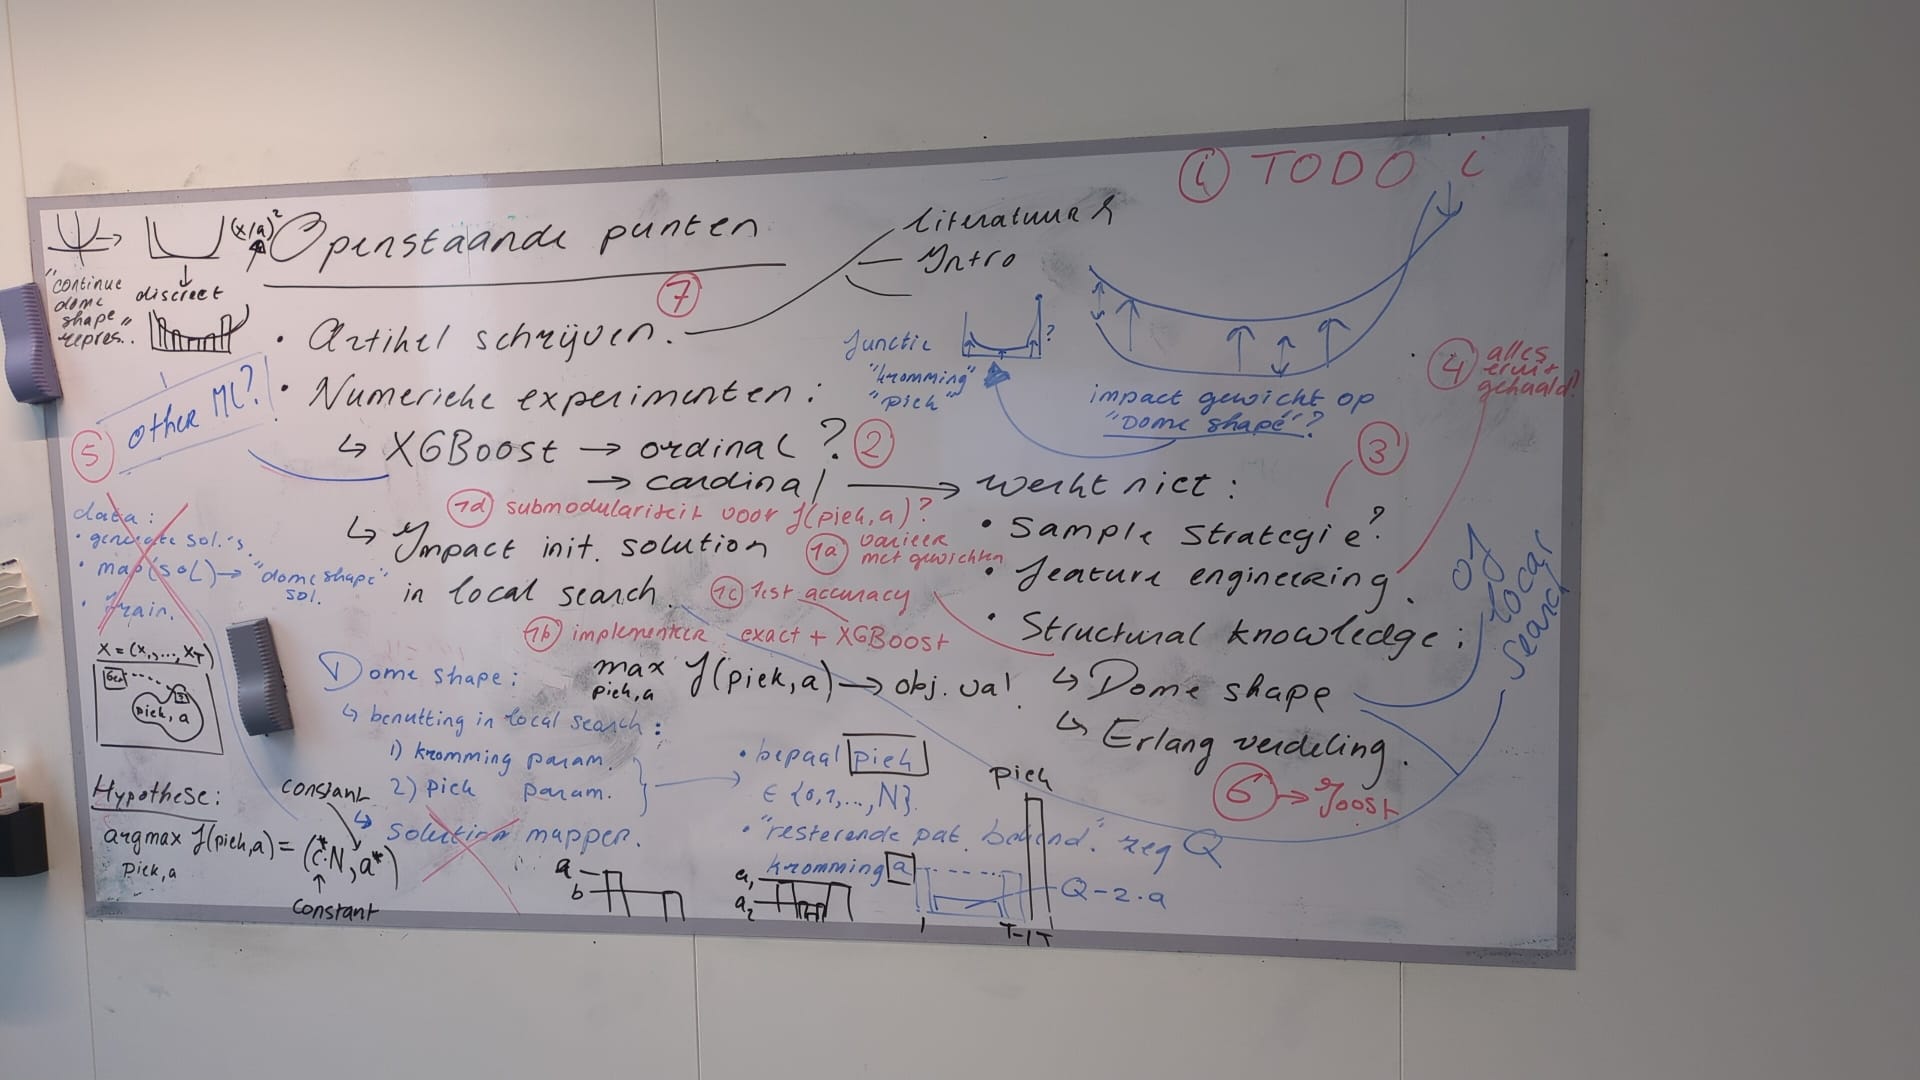 i TODO i
(x/a)²
Openstaande punten
literatuur
Intro
"continue
dome
shape"
repres..
discreet
7
• Artikel schrijven.
functie
"kromming"
"piek"
?
impact gewicht op
"Dome shape"?
4 alles
eruit
gehaald?
other ML?
5
• Numerieke experimenten:
↳ XGBoost → ordinal? 2
→ cardinal → werkt niet:
3
1d submodulariteit voor f(piek,a)?
• Sample strategie?
↳ Impact init. solution
in local search.
1a varieer
met gewichten
• feature engineering.
1c Test accuracy
1b implementeer exact + XGBoost
• Structural knowledge:
↳ Dome shape
↳ Erlang verdeling.
6 → Joost
of
local
search
data:
• generate sol.'s.
• map(sol) → "dome shape"
sol.
• train.
X = (x₁,..., x_T)
piek, a
Dome shape:
max f(piek,a) → obj. val
piek,a
↳ benutting in local search:
1) kromming param.
2) piek param.
• bepaal piek
∈ {0,1,..,N}.
↳ solution mapper.
• "resterende pat. bekend". zeg Q
kromming a
Hypothese:
argmax f(piek,a) = (c*·N, a*)
piek,a
constant
constant
a
b
a₁
a₂
piek
Q-2·a
1
T-1
T